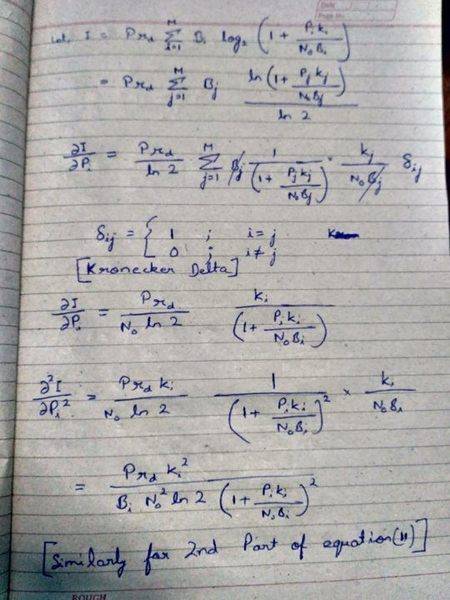 Let I = Pr_d Σ_{i=1}^{M} B_i log_2 (1 + P_i k_i / N_0 B_i)
= Pr_d Σ_{j=1}^{M} B_j ln(1 + P_j k_j / N_0 B_j) / ln 2
∂I/∂P_i = Pr_d / ln 2 Σ_{j=1}^{M} B_j 1 / (1 + P_j k_j / N_0 B_j) × k_j / N_0 B_j δ_ij
δ_ij = { 1 ; i = j
0 ; i ≠ j
[Kronecker Delta]
∂I/∂P_i = Pr_d / N_0 ln 2 k_i / (1 + P_i k_i / N_0 B_i)
∂²I/∂P_i² = Pr_d k_i / N_0 ln 2 1 / (1 + P_i k_i / N_0 B_i)² × k_i / N_0 B_i
= Pr_d k_i² / B_i N_0² ln 2 (1 + P_i k_i / N_0 B_i)²
[Similarly for 2nd Part of equation(11)]
ROUGH